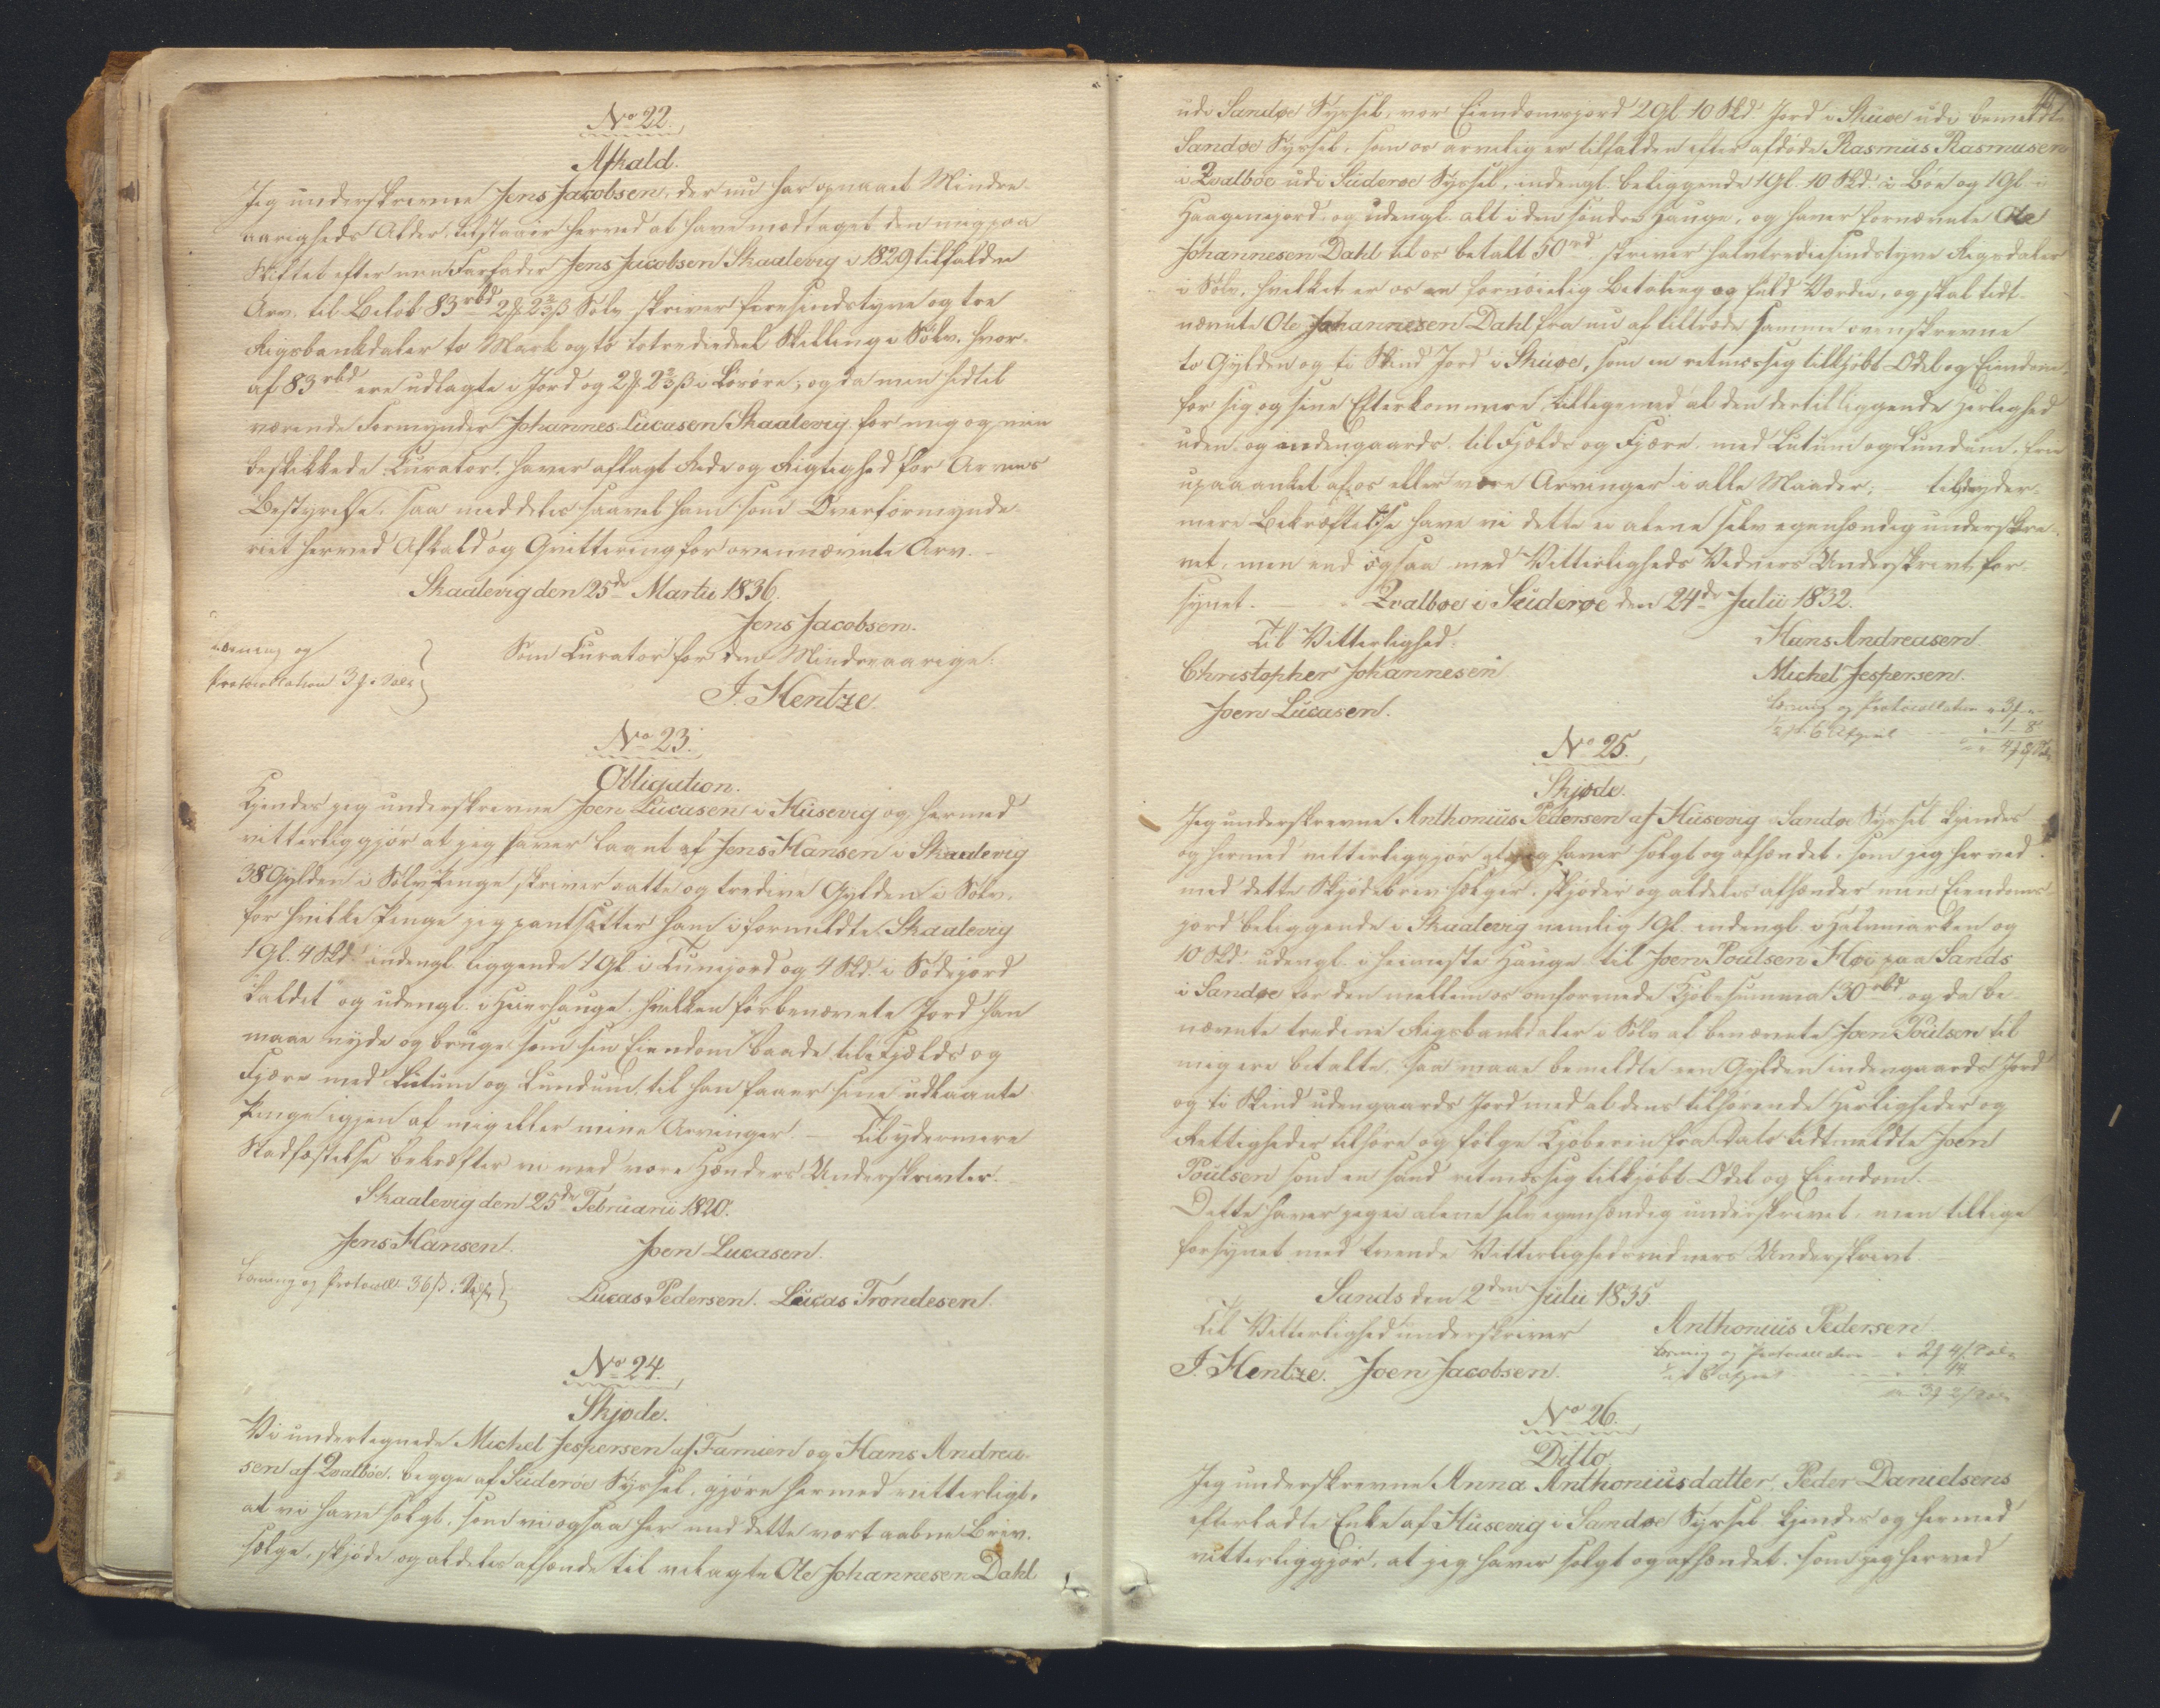 No 22.
Afkald.
Jeg underskrevne Jens Jacobsen, der nu har opnaaet Mindre-
aarigheds Alder, tilstaaer herved at have modtaget den mig paa
Skiftet efter min Farfader Jens Jacobsen Skaalevig i 1829 tilfaldne
Arv, til Beløb 83 rbd 2 ₰ 2⅔ β Sølv skriver firesindstyve og tre
Rigsbankdaler to Mark og to totrediedeel Skilling i Sølv, hvor-
af 83 rbd ere udlagte i Jord og 2 ₰ 2⅔ β i Løsøre; og da min hidtil
værende Formynder Johannes Lucasen Skaalevig, for mig og min
beskikkede Curator, haver aflagt Rede og Rigtighed for Arvens
Bestyrelse, saa meddeles saavel ham som Overformynde-
riet herved Afkald og Qvittering for ovennævnte Arv.
Skaalevig den 25de Martii 1836.
Jens Jacobsen.
Læsning og
Protocollation 3 ₰ Sølv
Som Curator for den Mindreaarige:
J. Hentze.
No 23.
Obligation.
Kjendes jeg underskrevne Joen Lucasen i Husevig og hermed
vitterliggjør at jeg haver laant af Jens Hansen i Skaalevig
38 Gylden i Sølv Penge skriver aatte og tredive Gylden i Sølv,
for hvilke Penge jeg pantsætter ham i formeldte Skaalevig
1 Gl. 4 Skd. indengl. liggende 1 Gl. i Tunijord og 4 Skd. i Sødejord
kaldet og udengl. i Heimhauge, hvilken forbenævnte Jord han
maae nyde og bruge som sin Eiendom baade til Fjelds og
Fjære med Luttum og Lundum, til han faaer sine udlaante
Penge igjen af mig eller mine Arvinger. – Til ydermere
Stadfæstelse bekræfter vi med vore Hænders Underskrivter.
Skaalevig den 25de Februarii 1820.
Jens Hansen. Joen Lucasen.
Læsning og Protocoll. 36 β: Sølv
Lucas Pedersen. Lucas Trondesen.
No 24.
Skjøde.
Vi undertegnede Michel Jespersen af Famien og Hans Andrea-
sen af Qvalbøe, begge af Suderøe Syssel, gjøre hermed vitterligt,
at vi have solgt, som vi ogsaa her med dette vort aabne Brev,
sælge, skjøde og aldeles afhænde til velagte Ole Johannesen Dahl
udi Sandøe Syssel, vor Eiendomsjord 2 Gl. 10 Skd. Jord i Skuøe udi bemeldte
Sandøe Syssel, som os arvelig er tilfalden efter afdøde Rasmus Rasmusen
i Qvalbøe udi Suderøe Syssel, indengl. beliggende 1 Gl. 10 Skd. i Bøe og 1 Gl. i
Haagenejord, og udengl. alt i den søndre Hauge, og haver fornævnte Ole
Johannesen Dahl til os betalt 50 rd. skriver halvtrediesindstyve Rigsdaler
i Sølv, hvilket er os en fornøielig Betaling og fuld Værdie, og skal tidt-
nævnte Ole Johannesen Dahl fra nu af tiltræde samme ovenskrevne
to Gylden og ti Skind Jord i Skuøe, som en retmæssig tilkjøbt Odel og Eiendom
for sig og sine Efterkommere, tilligemed al den dertil liggende Herlighed
uden- og indengaards, til Fjelds og Fjære, med Lutum og Lundum, frie
upaaanket af os eller vore Arvinger i alle Maader; – til yder-
mere Bekræftelse have vi dette ei alene selv egenhændig underskre-
vet, men end ogsaa med Vitterligheds Vidners Underskrivt for-
synet. — Qvalbøe i Suderøe den 24de Julii 1832.
Til Vitterlighed: Hans Andreasen
Christopher Johannesen Michel Jespersen.
Joen Lucasen.
Læsning og Protocollation 3 ₰
No 25.
Skjøde.
Jeg underskrevne Anthonius Pedersen af Husevig i Sandøe Syssel kjendes
og hermed vitterliggjør at jeg haver solgt og afhændet, som jeg herved
med dette Skjødebrev sælger, skjøder og aldeles afhænder min Eiendoms-
jord beliggende i Skaalevig nemlig 1 Gl. indengl. i Halvmarken og
10 Skd. udengl. i heimeste Hauge til Joen Poulsen Høi paa Sands
i Sandøe for den mellem os omforenede Kjøbesumma 30 rbd, og da be-
nævnte tredive Rigsbankdaler i Sølv af benævnte Joen Poulsen til
mig ere betalte, saa maae bemeldte een Gylden indengaards Jord
og ti Skind udengaards Jord med al dens tilhørende Herligheder og
Rettigheder tilhøre og følge Kjøberen fra Dato tidtmeldte Joen
Poulsen som en sand retmæssig tilkjøbt Odel og Eiendom.
Dette haver jeg ei alene selv egenhændig underskrevet, men tillige
forsynet med tvende Vitterlighedsvidners Underskrivt
Sands den 2den Julii 1835
Til Vitterlighed underskriver Anthonius Pedersen
J. Hentze. Joen Jacobsen.
Læsning og Protocollation
No 26.
Ditto.
Jeg underskrevne Anna Anthoniusdatter, Peder Danielsens
efterladte Enke af Husevig i Sandøe Syssel kjendes og hermed
vitterliggjør, at jeg haver solgt og afhændet, som jeg herved